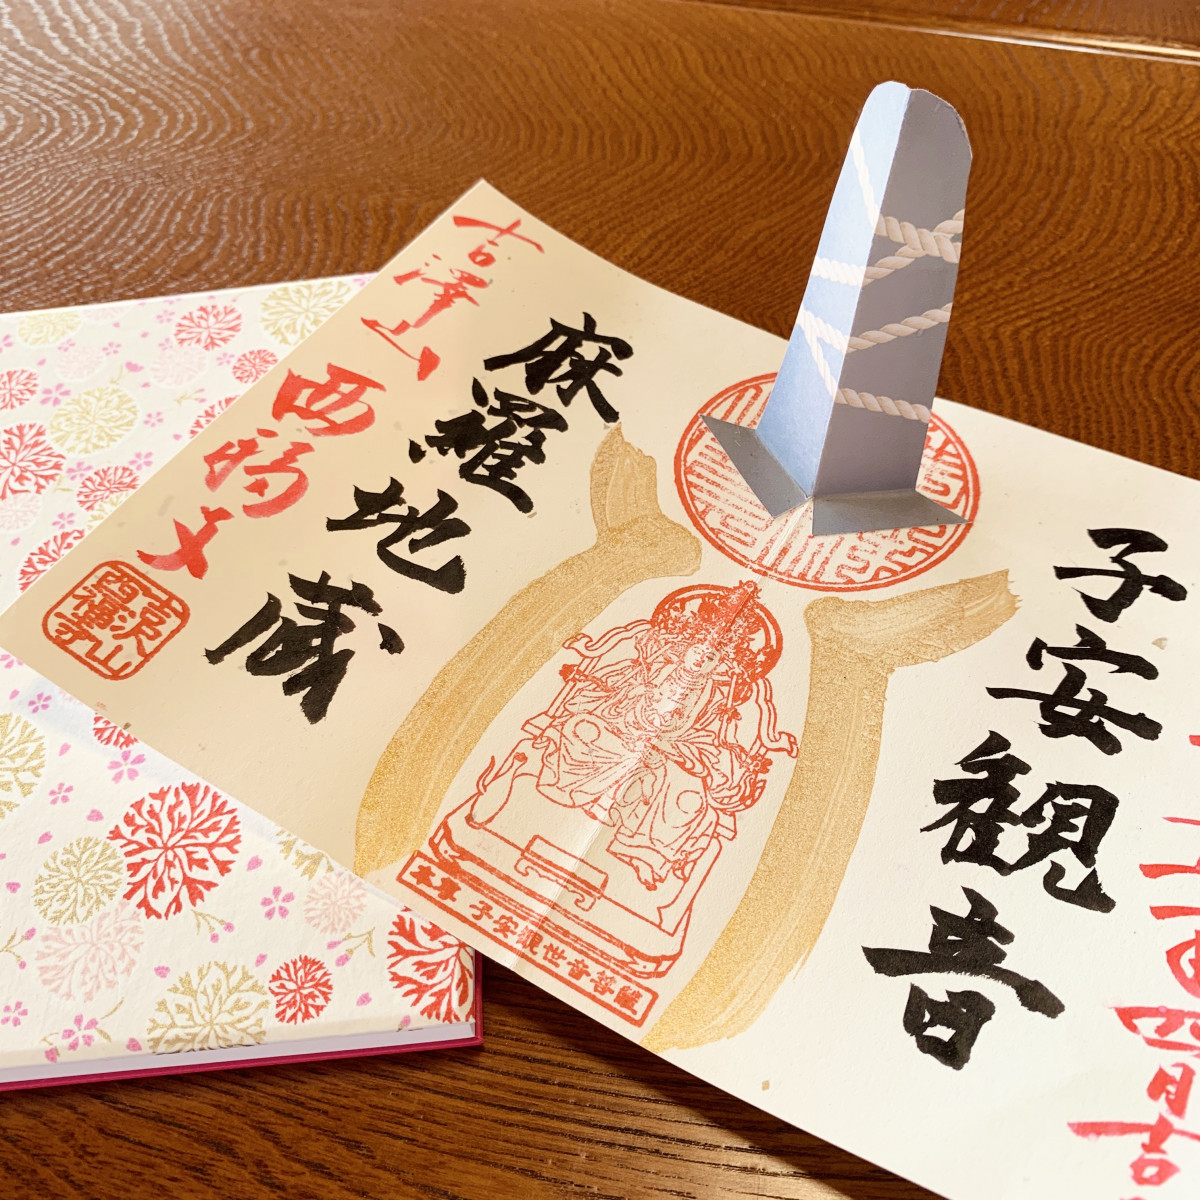 四月吉
子安観音
本尊 子安観世音菩薩
麻羅地蔵
吉澤山
西福寺
吉沢山
西福寺